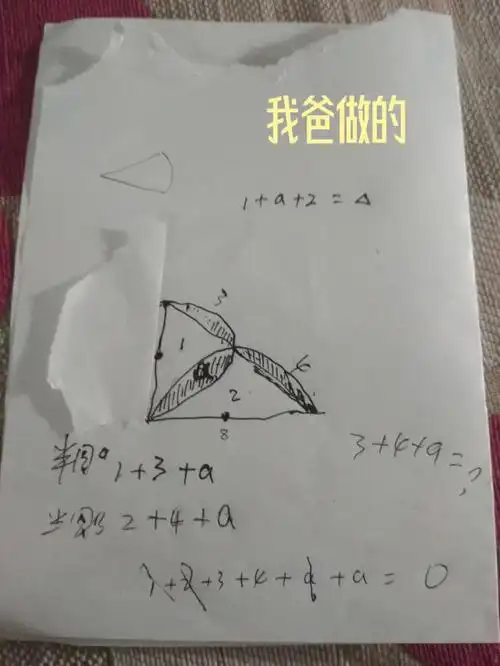 我爸做的
1+a+2=△
3
1
a
6
2
8
半圆a 1+3+a
3+4+a=?
半圆b 2+4+a
1+2+3+4+a+a=0